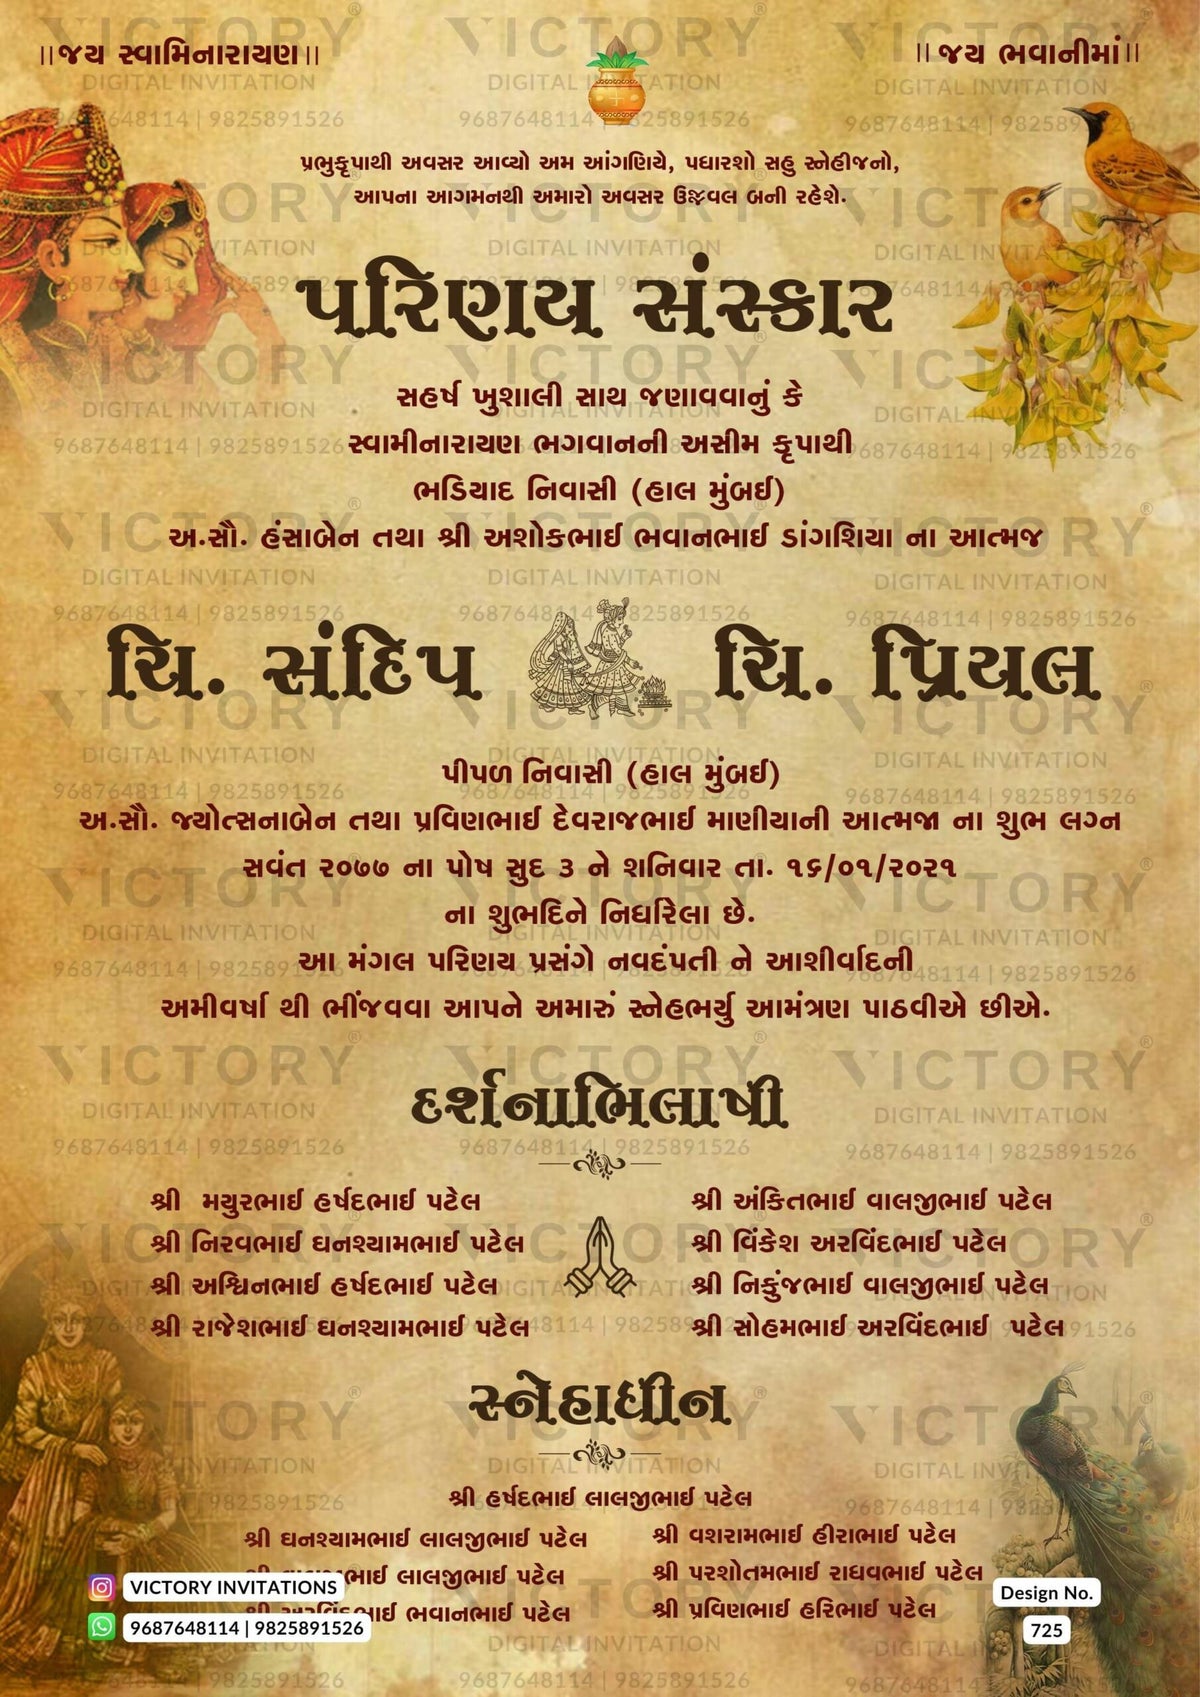 ||જય સ્વામિનારાયણ||
||જય ભવાનીમાં||
પ્રભુકૃપાથી અવસર આવ્યો અમ આંગણિયે, પધારશો સહુ સ્નેહીજનો,
આપના આગમનથી અમારો અવસર ઉજ્વલ બની રહેશે.
પરિણય સંસ્કાર
સહર્ષ ખુશાલી સાથ જણાવવાનું કે
સ્વામીનારાયણ ભગવાનની અસીમ કૃપાથી
ભડિયાદ નિવાસી (હાલ મુંબઈ)
અ.સૌ. હંસાબેન તથા શ્રી અશોકભાઈ ભવાનભાઈ ડાંગશિયા ના આત્મજ
ચિ. સંદિપ ચિ. પ્રિયલ
પીપળ નિવાસી (હાલ મુંબઈ)
અ.સૌ. જ્યોત્સનાબેન તથા પ્રવિણભાઈ દેવરાજભાઈ માણીયાની આત્મજા ના શુભ લગ્ન
સવંત ૨૦૭૭ ના પોષ સુદ ૩ ને શનિવાર તા. ૧૬/૦૧/૨૦૨૧
ના શુભદિને નિર્ધારેલા છે.
આ મંગલ પરિણય પ્રસંગે નવદંપતી ને આશીર્વાદની
અમીવર્ષા થી ભીંજવવા આપને અમારું સ્નેહભર્યુ આમંત્રણ પાઠવીએ છીએ.
દર્શનાભિલાષી
શ્રી મયુરભાઈ હર્ષદભાઈ પટેલ
શ્રી નિરવભાઈ ઘનશ્યામભાઈ પટેલ
શ્રી અશ્વિનભાઈ હર્ષદભાઈ પટેલ
શ્રી રાજેશભાઈ ઘનશ્યામભાઈ પટેલ
શ્રી અંકિતભાઈ વાલજીભાઈ પટેલ
શ્રી વિંકેશ અરવિંદભાઈ પટેલ
શ્રી નિકુંજભાઈ વાલજીભાઈ પટેલ
શ્રી સોહમભાઈ અરવિંદભાઈ પટેલ
સ્નેહાધીન
શ્રી હર્ષદભાઈ લાલજીભાઈ પટેલ
શ્રી ઘનશ્યામભાઈ લાલજીભાઈ પટેલ
લાલજીભાઈ પટેલ
ભવાનભાઈ પટેલ
શ્રી વશરામભાઈ હીરાભાઈ પટેલ
શ્રી પરશોતમભાઈ રાઘવભાઈ પટેલ
શ્રી પ્રવિણભાઈ હરિભાઈ પટેલ
VICTORY INVITATIONS
9687648114 | 9825891526
Design No.
725
VICTORY®
DIGITAL INVITATION
9687648114 | 9825891526